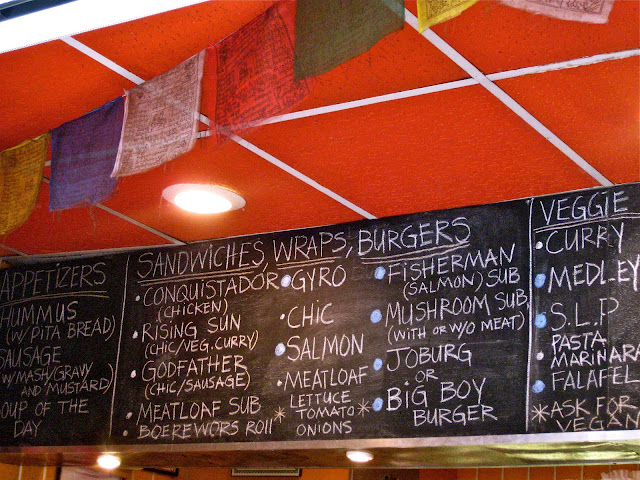 APPETIZERS
HUMMUS
(W/PITA BREAD)
SAUSAGE
W/MASH/GRAVY
AND MUSTARD)
OUP OF THE
DAY
SANDWICHES, WRAPS, BURGERS
CONQUISTADOR
(CHICKEN)
RISING SUN
(CHIC/VEG.CURRY)
GODFATHER
(CHIC/SAUSAGE)
MEATLOAF SUB
BOEREWORS ROLL
GYRO
CHIC
SALMON
MEATLOAF
*LETTUCE
TOMATO*
ONIONS
FISHERMAN
(SALMON) SUB
MUSHROOM SUB
(WITH OR W/O MEAT)
JOBURG
OR
BIG BOY
BURGER
VEGGIE
CURRY
MEDLEY
S.L.P
PASTA
MARINARA
FALAFEL
*ASK FOR
VEGAN